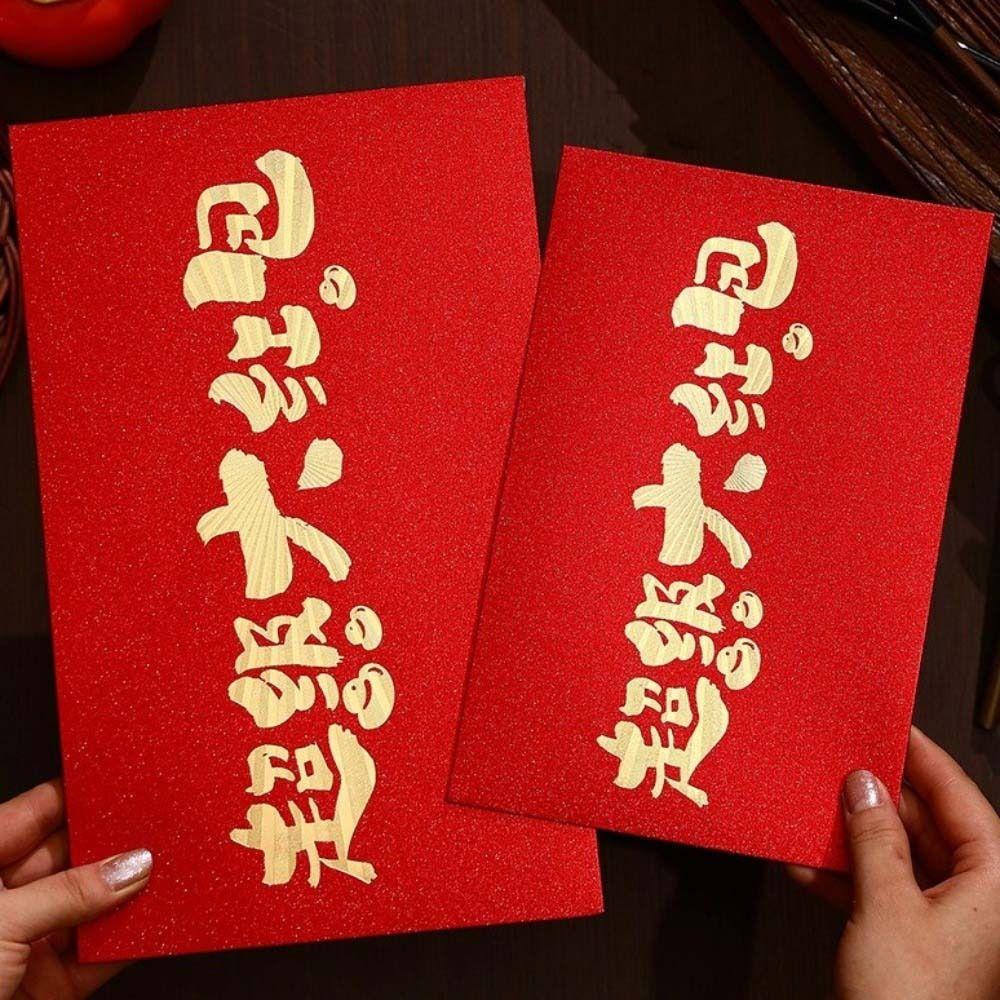 超级大红包
超级大红包